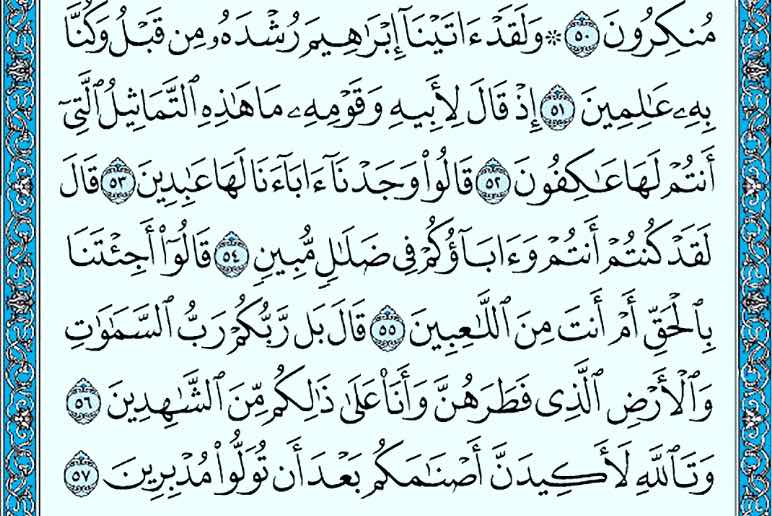 مُنكِرُونَ ٥٠ ۞ وَلَقَدْ ءَاتَيْنَآ إِبْرَٰهِيمَ رُشْدَهُۥ مِن قَبْلُ وَكُنَّا
بِهِۦ عَٰلِمِينَ ٥١ إِذْ قَالَ لِأَبِيهِ وَقَوْمِهِۦ مَا هَٰذِهِ ٱلتَّمَاثِيلُ ٱلَّتِىٓ
أَنتُمْ لَهَا عَٰكِفُونَ ٥٢ قَالُوا۟ وَجَدْنَآ ءَابَآءَنَا لَهَا عَٰبِدِينَ ٥٣ قَالَ
لَقَدْ كُنتُمْ أَنتُمْ وَءَابَآؤُكُمْ فِى ضَلَٰلٍ مُّبِينٍ ٥٤ قَالُوٓا۟ أَجِئْتَنَا
بِٱلْحَقِّ أَمْ أَنتَ مِنَ ٱللَّٰعِبِينَ ٥٥ قَالَ بَل رَّبُّكُمْ رَبُّ ٱلسَّمَٰوَٰتِ
وَٱلْأَرْضِ ٱلَّذِى فَطَرَهُنَّ وَأَنَا۠ عَلَىٰ ذَٰلِكُم مِّنَ ٱلشَّٰهِدِينَ ٥٦
وَتَٱللَّهِ لَأَكِيدَنَّ أَصْنَٰمَكُم بَعْدَ أَن تُوَلُّوا۟ مُدْبِرِينَ ٥٧